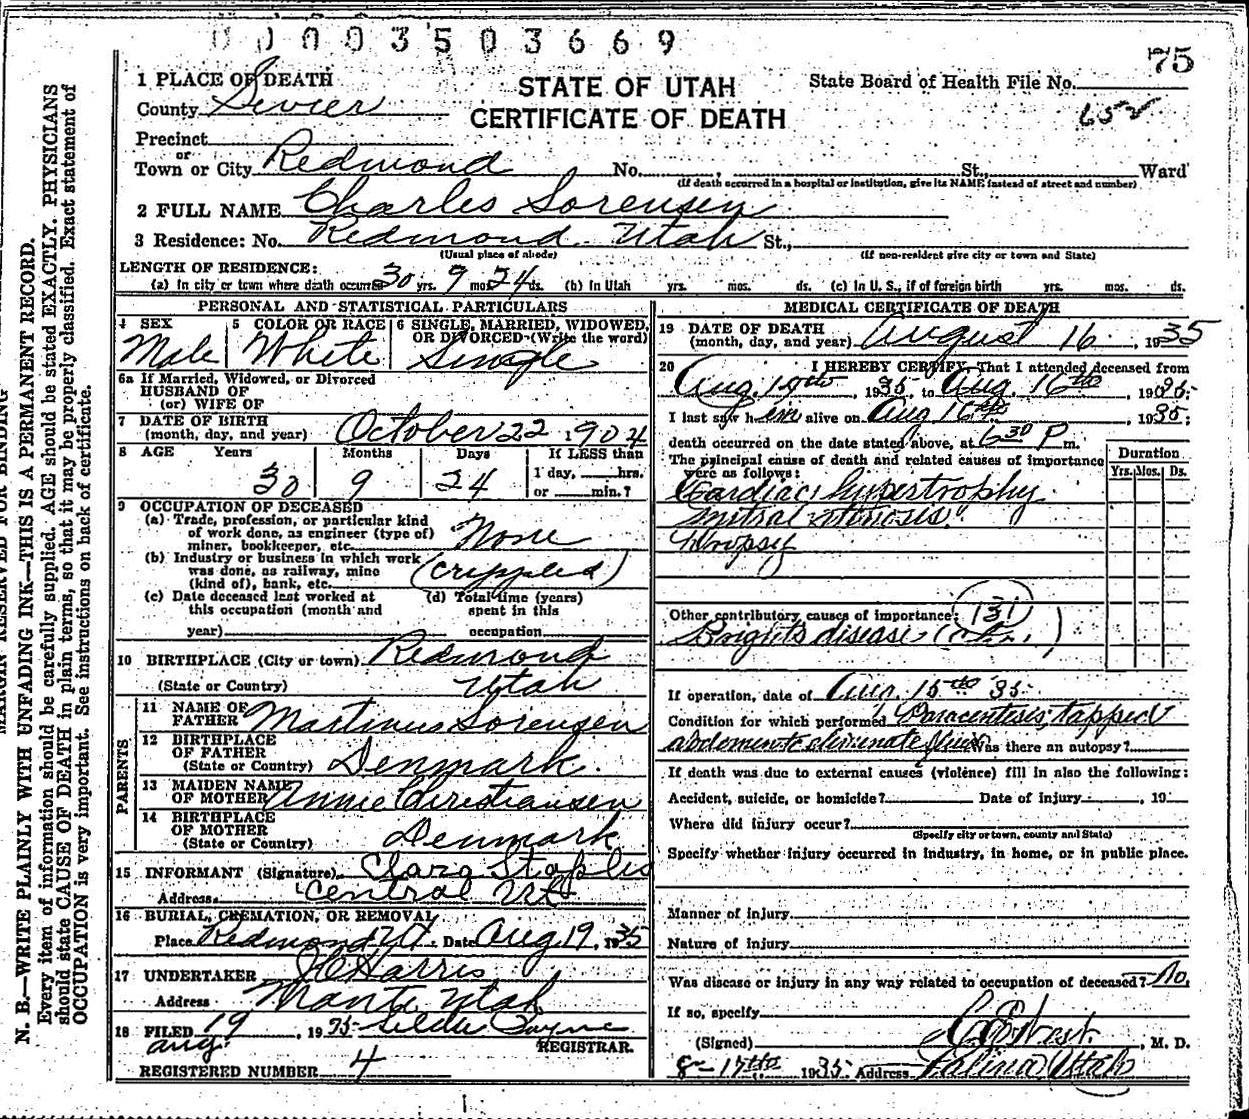 00003503669
75
1 PLACE OF DEATH
County Sevier
STATE OF UTAH
CERTIFICATE OF DEATH
State Board of Health File No.
652
Precinct
or
Town or City Redmond No. , St., Ward
(If death occurred in a hospital or institution, give its NAME instead of street and number)
2 FULL NAME Charles Sorensen
3 Residence: No. Redmond Utah St.,
(Usual place of abode) (If non-resident give city or town and State)
LENGTH OF RESIDENCE:
(a) In city or town where death occurred 30 yrs. 9 mos. 24 ds. (b) In Utah yrs. mos. ds. (c) In U. S., if of foreign birth yrs. mos. ds.
PERSONAL AND STATISTICAL PARTICULARS
4 SEX Male
5 COLOR OR RACE White
6 SINGLE, MARRIED, WIDOWED, OR DIVORCED (Write the word) Single
6a If Married, Widowed, or Divorced
HUSBAND OF
(or) WIFE OF
7 DATE OF BIRTH
(month, day, and year) October 22 1904
8 AGE Years Months Days If LESS than
1 day, hrs.
30 9 24 or min.?
9 OCCUPATION OF DECEASED
(a) Trade, profession, or particular kind
of work done, as engineer (type of)
miner, bookkeeper, etc. None
(b) Industry or business in which work
was done, as railway, mine
(kind of), bank, etc. (crippled)
(c) Date deceased last worked at
this occupation (month and
year)
(d) Total time (years)
spent in this
occupation
10 BIRTHPLACE (City or town) Redmond
(State or Country) Utah
PARENTS
11 NAME OF
FATHER Martinus Sorensen
12 BIRTHPLACE
OF FATHER
(State or Country) Denmark.
13 MAIDEN NAME
OF MOTHER Annie Christiansen
14 BIRTHPLACE
OF MOTHER
(State or Country) Denmark
15 INFORMANT (Signature) Clara Staples
Address Central Ut
16 BURIAL, CREMATION, OR REMOVAL
Place Redmond Ut. Date Aug 19, 1935
17 UNDERTAKER Harris
Address Manti Utah
18 FILED 19 , 1935 Payne
Aug. REGISTRAR.
REGISTERED NUMBER 4
MEDICAL CERTIFICATE OF DEATH
19 DATE OF DEATH
(month, day, and year) August 16 , 1935
20 I HEREBY CERTIFY, That I attended deceased from
Aug. , 1935, to Aug. 16th , 1935.
I last saw him alive on Aug 16th , 1935;
death occurred on the date stated above, at 6 30 P m.
The principal cause of death and related causes of importance
were as follows:
Duration
Yrs. Mos. Ds.
Cardiac hypertrophy
mitral stenosis.
Dropsy
Other contributory causes of importance: (131)
Bright's disease
If operation, date of Aug. 15th 35
Condition for which performed Paracentisis; tapped
abdomen to eliminate fluid Was there an autopsy?
If death was due to external causes (violence) fill in also the following:
Accident, suicide, or homicide? Date of injury , 19
Where did injury occur?
(Specify city or town, county and State)
Specify whether injury occurred in industry, in home, or in public place.
Manner of injury
Nature of injury
Was disease or injury in any way related to occupation of deceased? No.
If so, specify
(Signed) , M. D.
8-17th 1935 Address Salina Utah
MARGIN RESERVED FOR BINDING
N. B.—WRITE PLAINLY WITH UNFADING INK—THIS IS A PERMANENT RECORD.
Every item of information should be carefully supplied. AGE should be stated EXACTLY. PHYSICIANS
should state CAUSE OF DEATH in plain terms, so that it may be properly classified. Exact statement of
OCCUPATION is very important. See instructions on back of certificate.